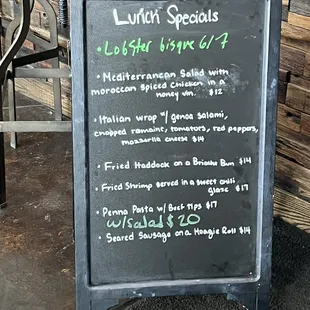 Lunch Specials
• Lobster bisque 6/7
• Mediterranean Salad with
moroccan spiced chicken in a
honey vin. $12
• Italian wrap w/ genoa salami,
chopped romaine, tomatoes, red peppers,
mozzarella cheese $14
• Fried Haddock on a Brioche Bun $14
• Fried Shrimp served in a sweet chili
glaze $17
• Penna Pasta w/ Beef Tips $17
w/salad $20
• Seared Sausage on a Hoagie Roll $14